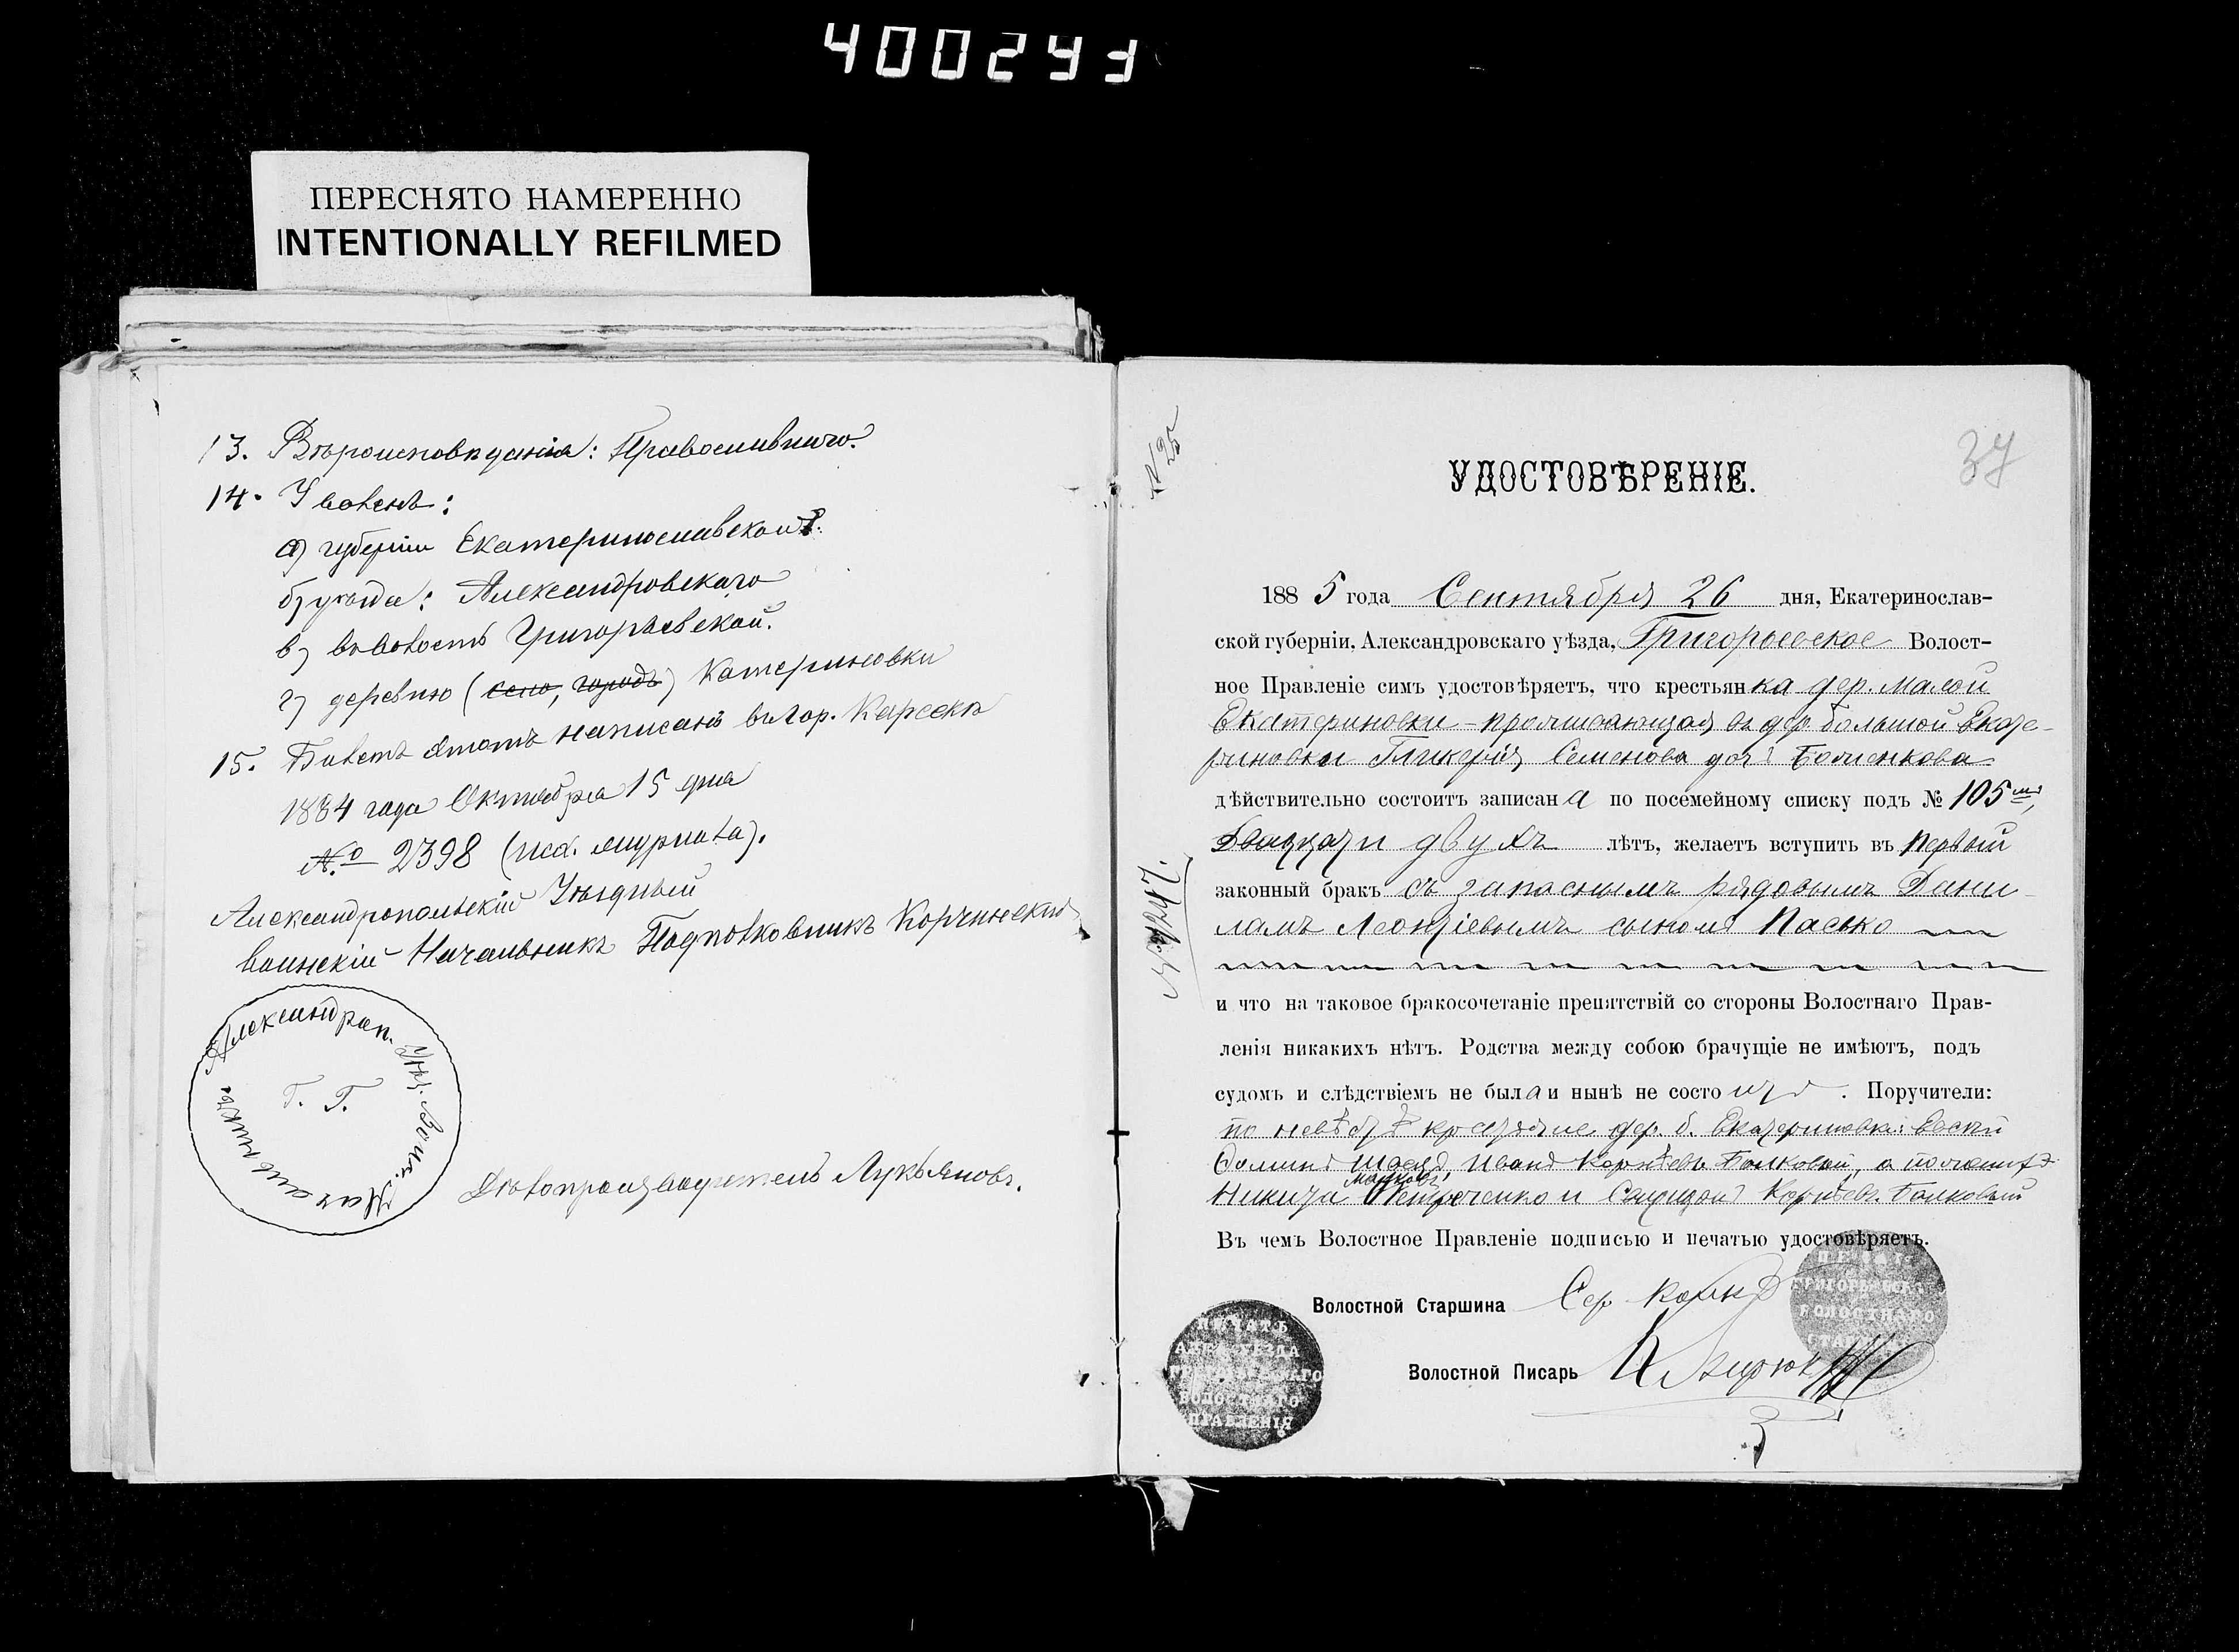 400243
ПЕРЕСНЯТО НАМЕРЕННО
INTENTIONALLY REFILMED
13. Вѣроисповѣданія: Православнаго.
14. Уволенъ:
а) губерніи Екатеринославской
б) уѣзда: Александровскаго
в) волость Григорьевской.
г) деревню (село, городъ) Катериновки
15. Билетъ этотъ написанъ въ гор. Карсекъ
1884 года Октября 15 дня
№ 2398 (исх. журнала).
Александропольскій Уѣздный
воинскій Начальникъ Подполковникъ Корчинскій
Александроп. Уѣз. Воин. Начальникъ
Дѣлопроизводитель Лукьяновъ.
№ 25
37
УДОСТОВѢРЕНІЕ.
1885 года Сентября 26 дня, Екатеринослав-
ской губерніи, Александровскаго уѣзда, Григорьевское Волост-
ное Правленіе симъ удостовѣряетъ, что крестьянка дер. Малой
Екатериновки - проживающая въ дер. Большой Екате-
риновки Гликерія Семенова дочь
дѣйствительно состоитъ записана по посемейному списку подъ № 105 мъ,
Двадцати двухъ лѣтъ, желаетъ вступить въ первый
законный бракъ съ запаснымъ рядовымъ Дани-
ломъ Леонтіевымъ сыномъ Пасько
и что на таковое бракосочетаніе препятствій со стороны Волостнаго Прав-
ленія никакихъ нѣтъ. Родства между собою брачущіе не имѣютъ, подъ
судомъ и слѣдствіемъ не была и нынѣ не состоитъ. Поручители:
по невѣстѣ крестьяне дер. б. Екатериновки:
Иванъ Корнѣевъ Балковый, а по женихѣ
Никита Петрченко и Спиридонъ Корнѣевъ Балковый
Въ чемъ Волостное Правленіе подписью и печатью удостовѣряетъ.
Волостной Старшина
Волостной Писарь
ПЕЧАТЬ
АЛЕК. УѢЗДА
ГРИГОРЬЕВСКАГО
ВОЛОСТНАГО
ПРАВЛЕНІЯ